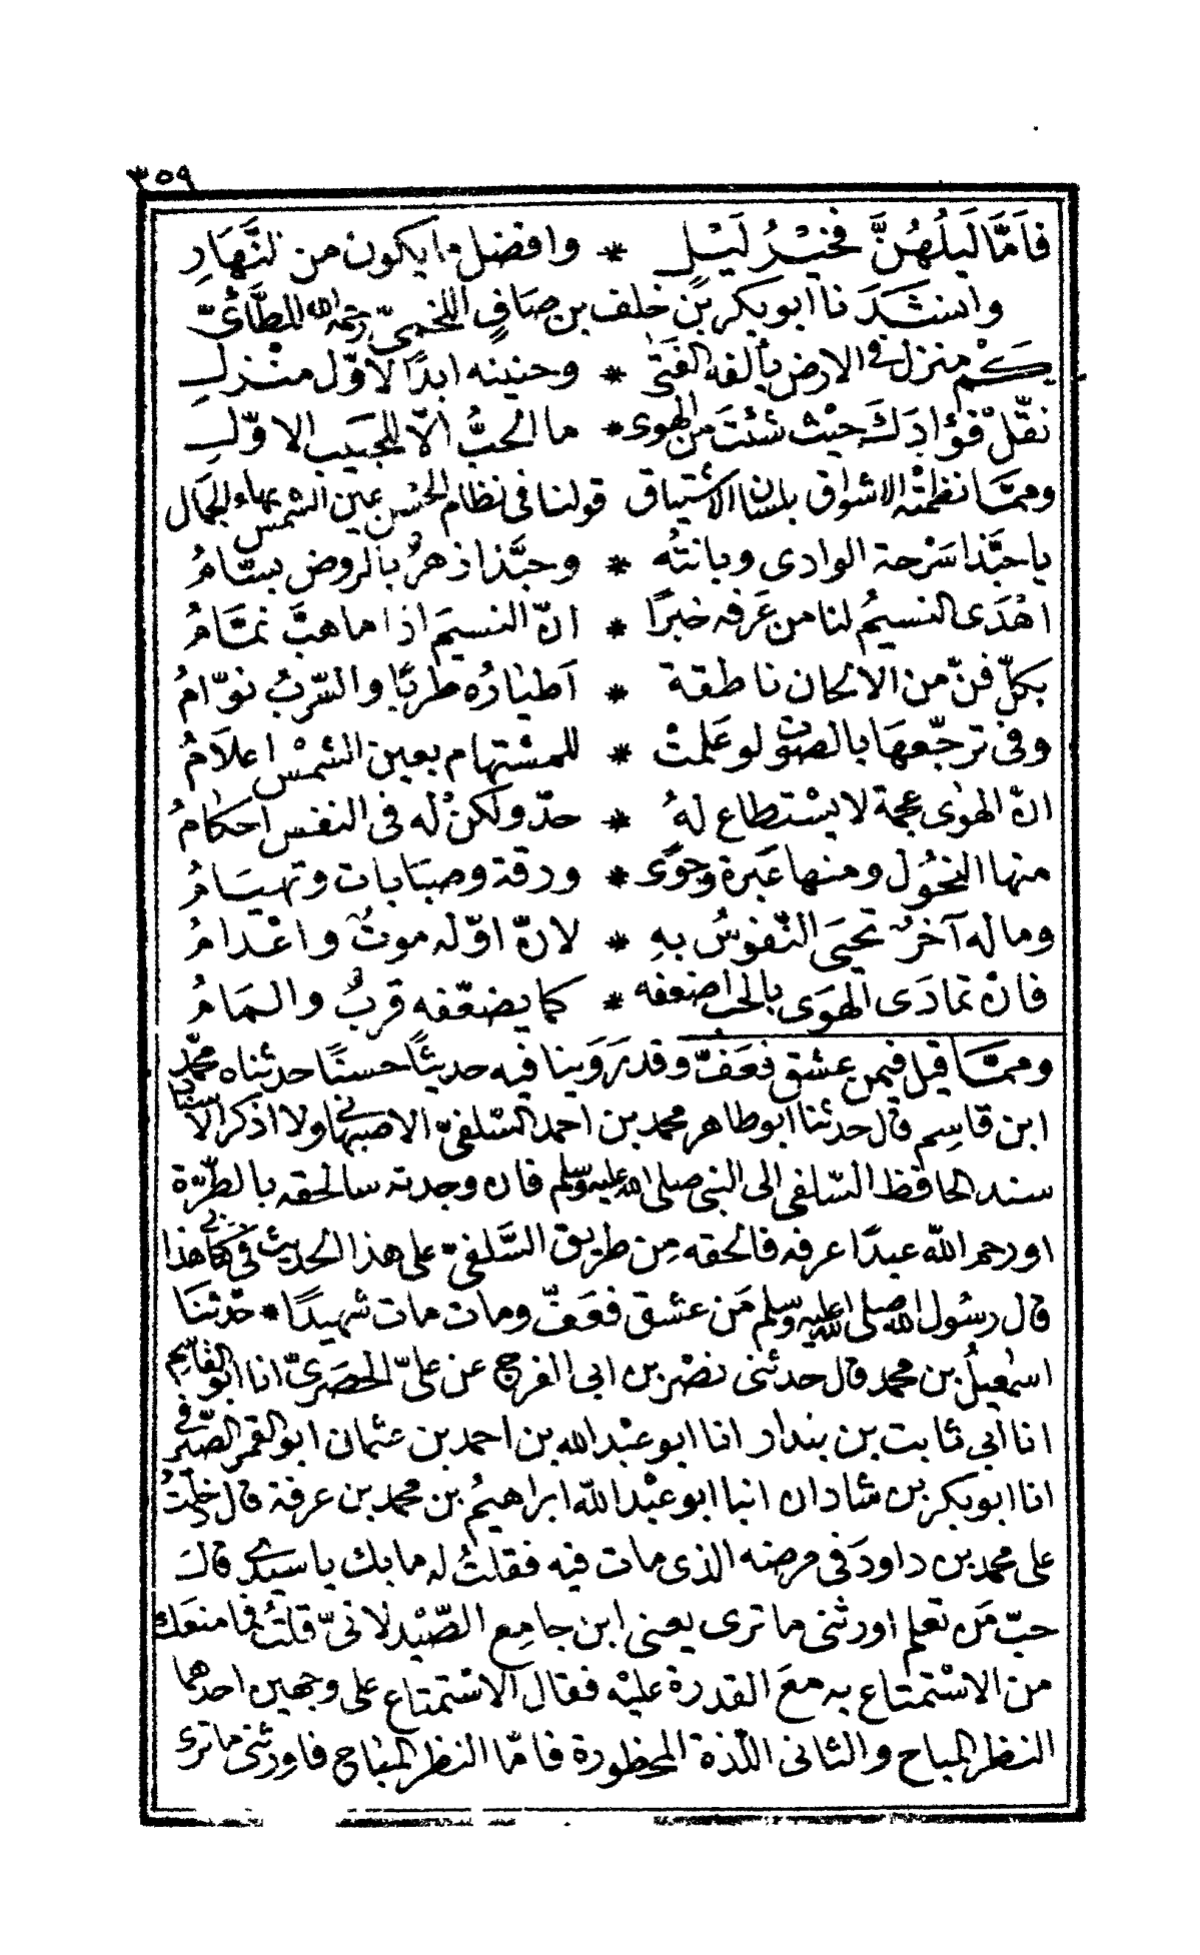 ٣٥٩
فَاَمَّا لَيلُهُنَّ فخيْرُ لَيْلٍ * وافضل ما يكون من النَّهَارِ
وانشَدَنا ابو بكر بن خلف بن صَافٍ اللخمىّ رحمه الله للطَّائىّ
كَمْ منزل فى الارض يألفه الفَتٰى * وحنينه ابدًا لاوّل منْزلِ
نقّلْ فؤادَكَ حيْث شئتَ من الهوى * ما الحبُّ الّا للحبَيب الاوّلِ
وممّا نظمتْه الاشواق بلسان الاشتياق قولنا فى نظام الحُسْن عين الشمس بهاء والجمال
يا حبّذا سَرْحة الوادى وبانتُه * وحبَّذا زهرٌ بالروض بسّامُ
اهْدَى النسيمُ لنا من عَرفه خبرًا * انّ النسيمَ اذا ما هبَّ نمّامُ
بكلّ فنّ من الالحان ناطقة * اَطيَارُه طربًا والسّربُ نوّامُ
وفى ترجّعهَا بالصَوت لو عَلمتْ * للمسْتهام بعين الشمْس اعلَامُ
انّ الهوٰى عجمة لا يسْتطاع لهُ * حدّ ولكنْ له فى النفس احكامُ
منها النحُول ومنها عَبرة وجوًى * ورقة وصبَابات وتهيَامُ
وما له آخرٌ تحيَى النّفوسُ بهِ * لانّ اوّله موتٌ واعْدامُ
فانْ تمادَى الهوَى بالحب اضعفه * كما يضعّفه قربٌ والمَامُ
وممّا قيل فيمن عشق فعَفّ وقد رَوَينا فيه حديثًا حسنًا حدثناه محمّد
ابن قاسِم قال حدثنا ابو طاهر محمد بن احمد السّلفىّ الاصبهانى ولا اذكر الآن
سند الحافظ السّلفى الى النبى صلى الله عليه وسلم فان وجدته سالحقه بالطرّة
او رحم الله عبدًا عرفه فالحقه مِن طريق السَّلفىّ على هذا الحديث فى كتابى هذا
قال رسُول الله صلى الله عليه وسلم مَن عشق فعَفّ ومات مات شهيدًا * حدّثنَا
اسمٰعيلُ بن محمد قال حدثنى نصْر بن ابى الفرج عن علىّ الحصَرىّ انا ابو القاسم
انا ابى ثابت بن بندار انا ابو عبْد الله بن احمد بن عثمان ابو القمر الصّيرفى
انا ابو بكر بن شادان انبا ابو عبْد الله ابراهيمُ بن محمد بن عرفة قال دخلتُ
على محمد بن داودَ فى مرضه الذى مات فيه فقلتُ له ما بك يا سيدى قالَ
حبّ مَن تعلم اورثنى ما ترى يعنى ابن جامِع الصّيْدلانىّ قلتُ فما منعَك
من الاسْتمتاع به مع القدرة عليْه فقال الاسْتمتاع على وجهين احدهما
النظر المباح والثانى اللّذة المحظورة فامّا النظر المباح فاورثنى ما ترى